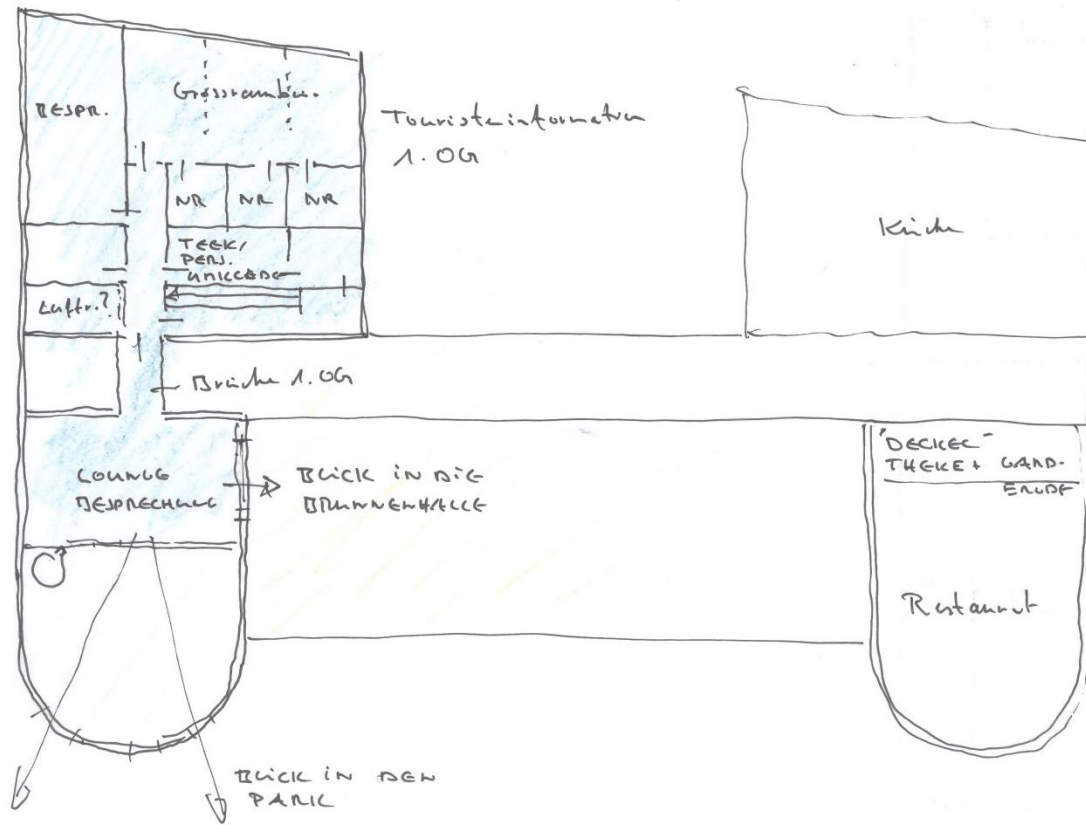 BESPR.
Grossraumbü.
Touristeinformation
1. OG
NR NR NR
Küche
TEEK/
PERS.
UMKLEIDE
Luftr.?
Brücke 1.OG
LOUNGE
BESPRECHUNG
BLICK IN DIE
BRUNNENHALLE
"DECKEL"
THEKE + GARD-
EROBE
Restaurant
BLICK IN DEN
PARK